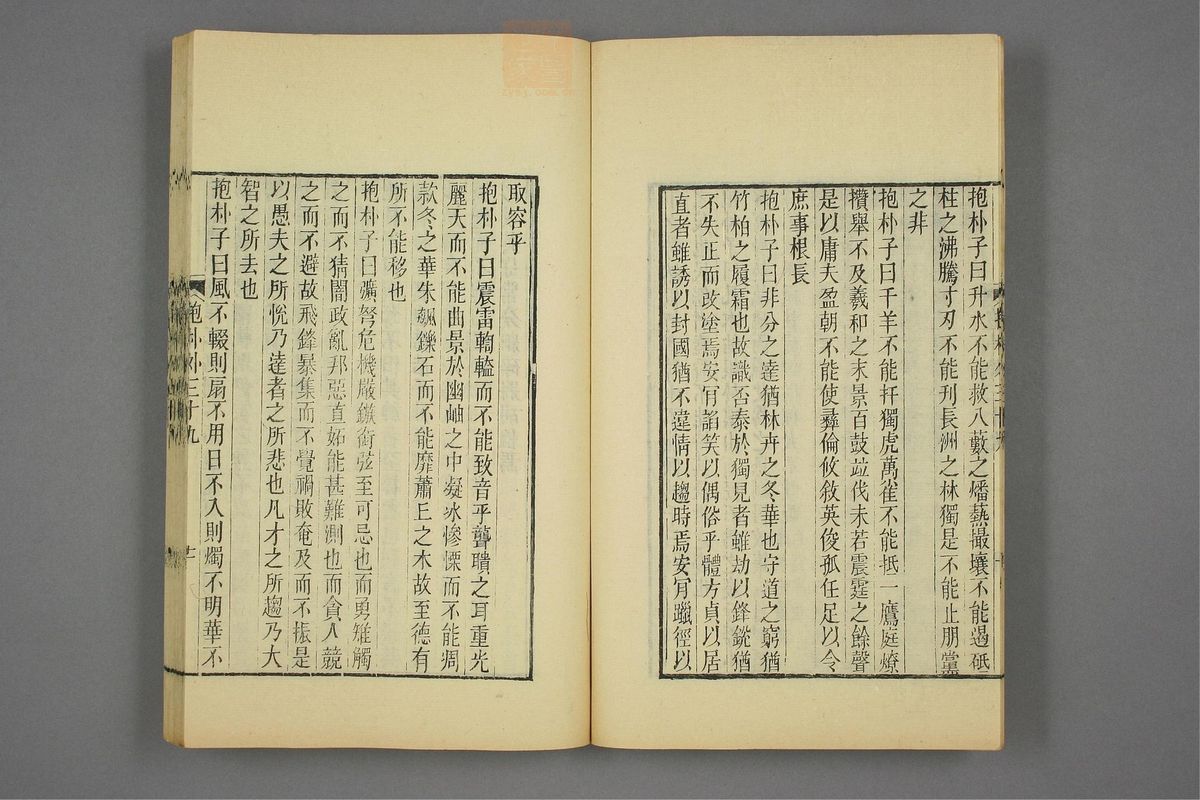 抱朴子曰升水不能救八藪之燔爇撮壤不能遏砥
柱之沸騰寸刃不能刋長洲之林獨是不能止朋黨
之非
抱朴子曰千羊不能扞獨虎萬雀不能抵一鷹庭燎
攢舉不及羲和之末景百鼓竝伐未若震霆之餘聲
是以庸夫盈朝不能使彝倫攸敘英俊孤任足以令
庶事根長
抱朴子曰非分之達猶林卉之冬華也守道之窮猶
竹柏之履霜也故識否泰於獨見者雖劫以鋒銳猶
不失正而改塗焉安肎諂笑以偶俗乎體方貞以居
直者雖誘以封國猶不違情以趨時焉安肎躐徑以
取容乎
抱朴子曰震雷輷䡘而不能致音乎聾聵之耳重光
麗天而不能曲景於幽岫之中凝冰慘慄而不能凋
款冬之華朱飈鑠石而不能靡蕭丘之木故至德有
所不能移也
抱朴子曰彍弩危機嚴鏃銜弦至可忌也而勇雉觸
之而不猜闇政亂邦惡直妬能甚難測也而貪人競
之而不避故飛鋒暴集而不覺禍敗奄及而不振是
以愚夫之所悅乃達者之所悲也凡才之所趨乃大
智之所去也
抱朴子曰風不輟則扇不用日不入則燭不明華不
抱朴外三十九
十一